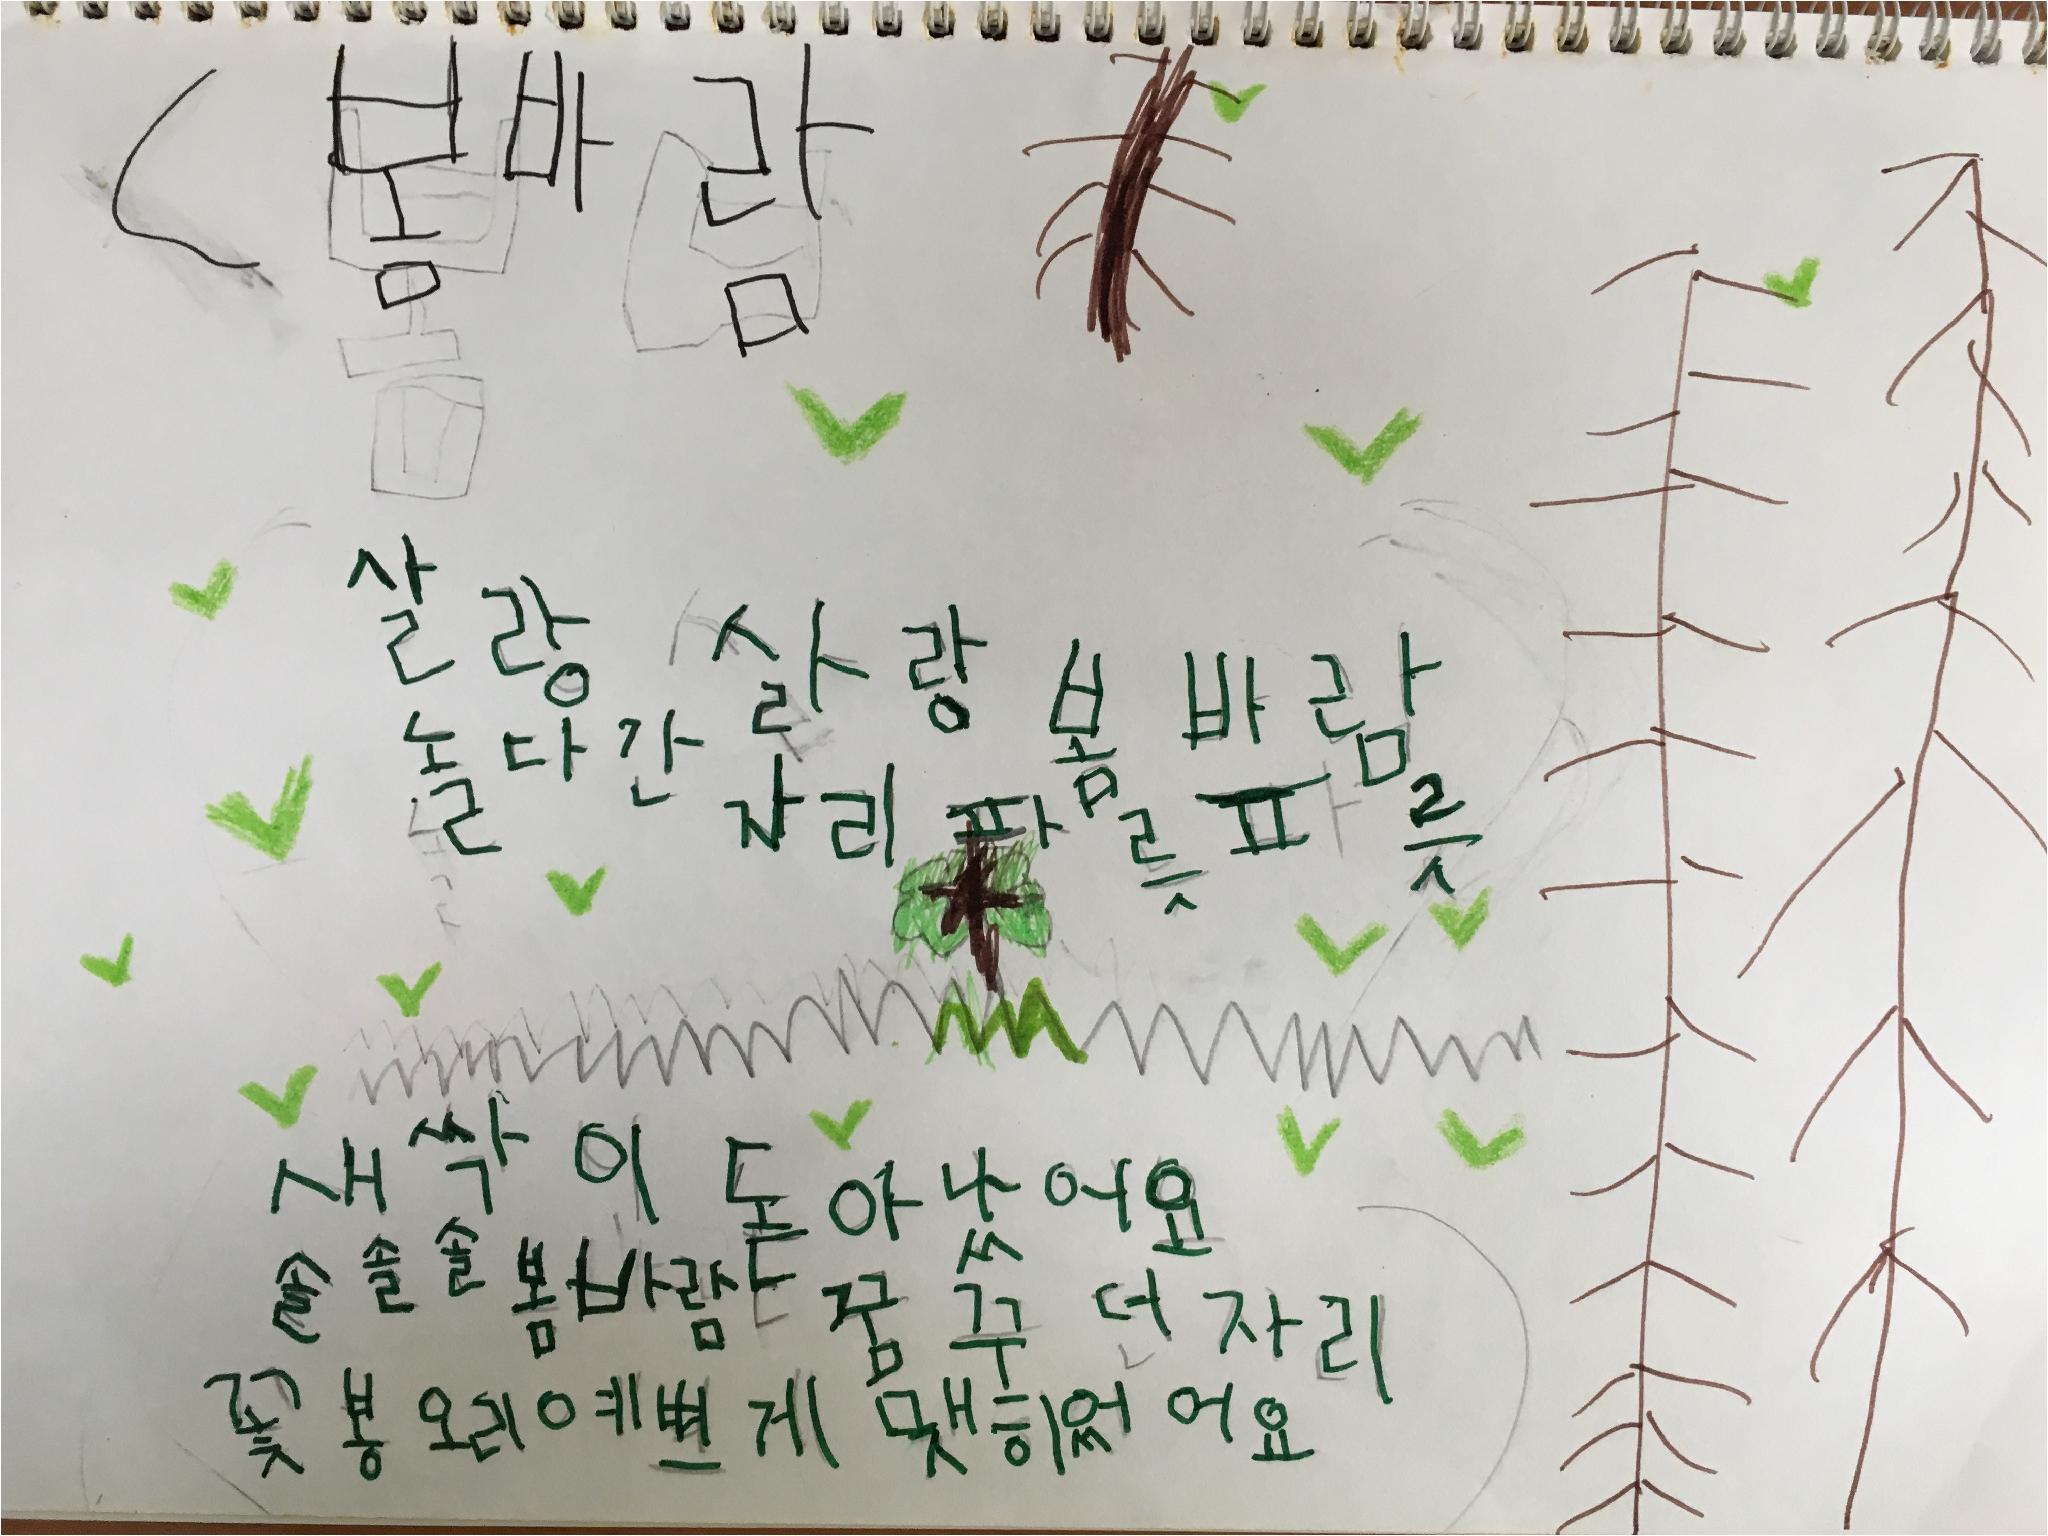 봄바람
살랑 살랑 봄바람
놀다간 자리 파릇파릇
새싹이 돋아났어요
솔솔솔 봄바람 꿈꾸던 자리
꽃봉오리 예쁘게 맺히었어요